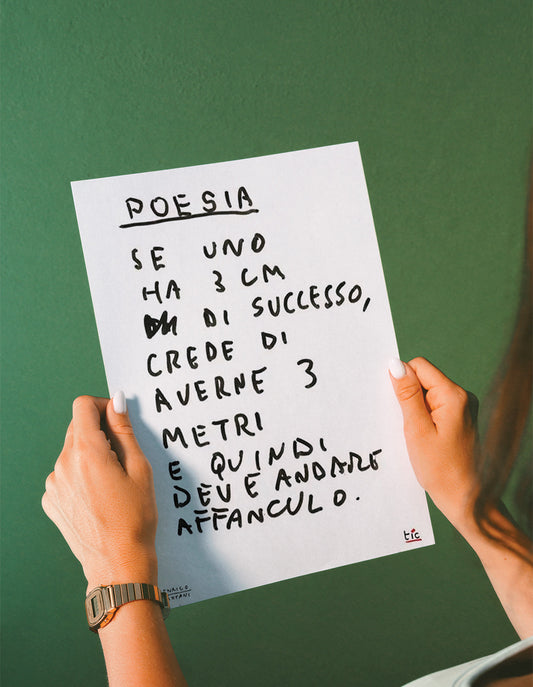 POESIA
SE UNO
HA 3 CM
DI SUCCESSO,
CREDE DI
AVERNE 3
METRI
E QUINDI
DEVE ANDARE
AFFANCULO.
tic